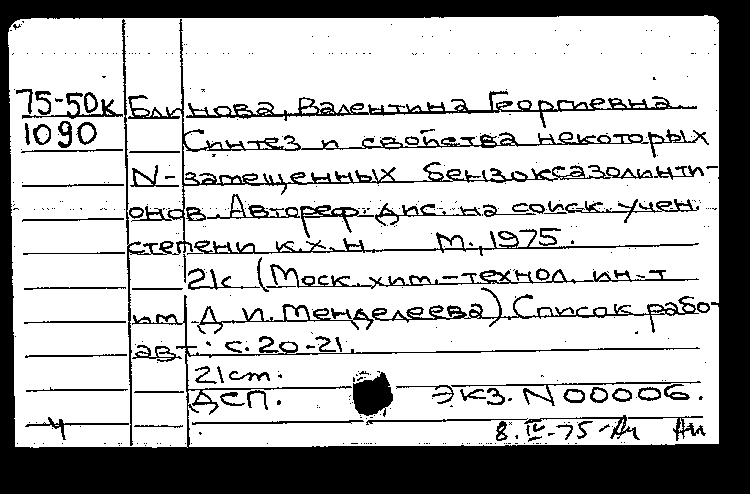 75-50к Блинова, Валентина Георгиевна.
1090 Синтез и свойства некоторых
N-замещенных бензоксазолинти-
онов. Автореф. дис. на соиск. учен.
степени к.х.н. М., 1975.
21с (Моск. хим.-технол. ин-т
им Д И. Менделеева). Список работ
авт.: с. 20-21.
21см.
ДСП. ЭКЗ. N 00006.
ч 8.IV-75-